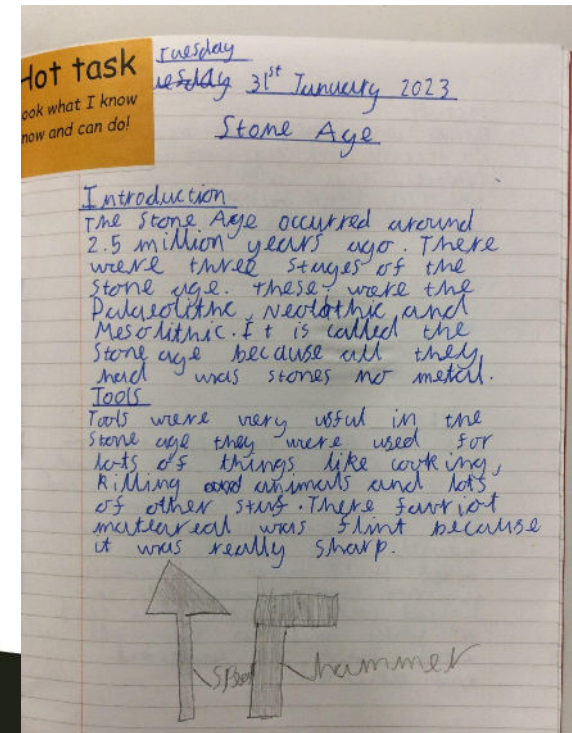 Hot task
ook what I know
now and can do!
Tuesday
uesday 31st January 2023
Stone Age
Introduction
The Stone Age occurred around
2.5 million years ago. There
were three stages of the
stone age. These were the
Palaeolithc, Neolothic, and
Mesolithic. It is called the
Stone age because all they
had was stones no metal.
Tools
Tools were very usful in the
stone age they were used for
lots of things like cooking,
killing animals and lots
of other stuf. There favriot
mateareal was flint because
it was really sharp.
hammer